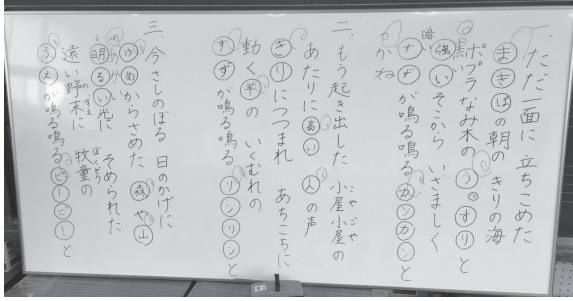 一、ただ一面に 立ちこめた
まきばの朝の きりの海
ポプラなみ木の うっすりと
黒い
暗い
強いそこから いさましく
すずが鳴る鳴る カンカンと
かね
二、もう起き出した 小屋小屋の
こやごや
あたりに高い 人の声
きりにつつまれ あちこちに
動く羊の いくむれの
すずが鳴る鳴る リンリンと
三、今さしのぼる 日のかげに
ゆめからさめた 森や山
明るい光に そめられた
遠い野末に 牧童の
のずえ ぼくどう
ふえが鳴る鳴る ピーヒーと